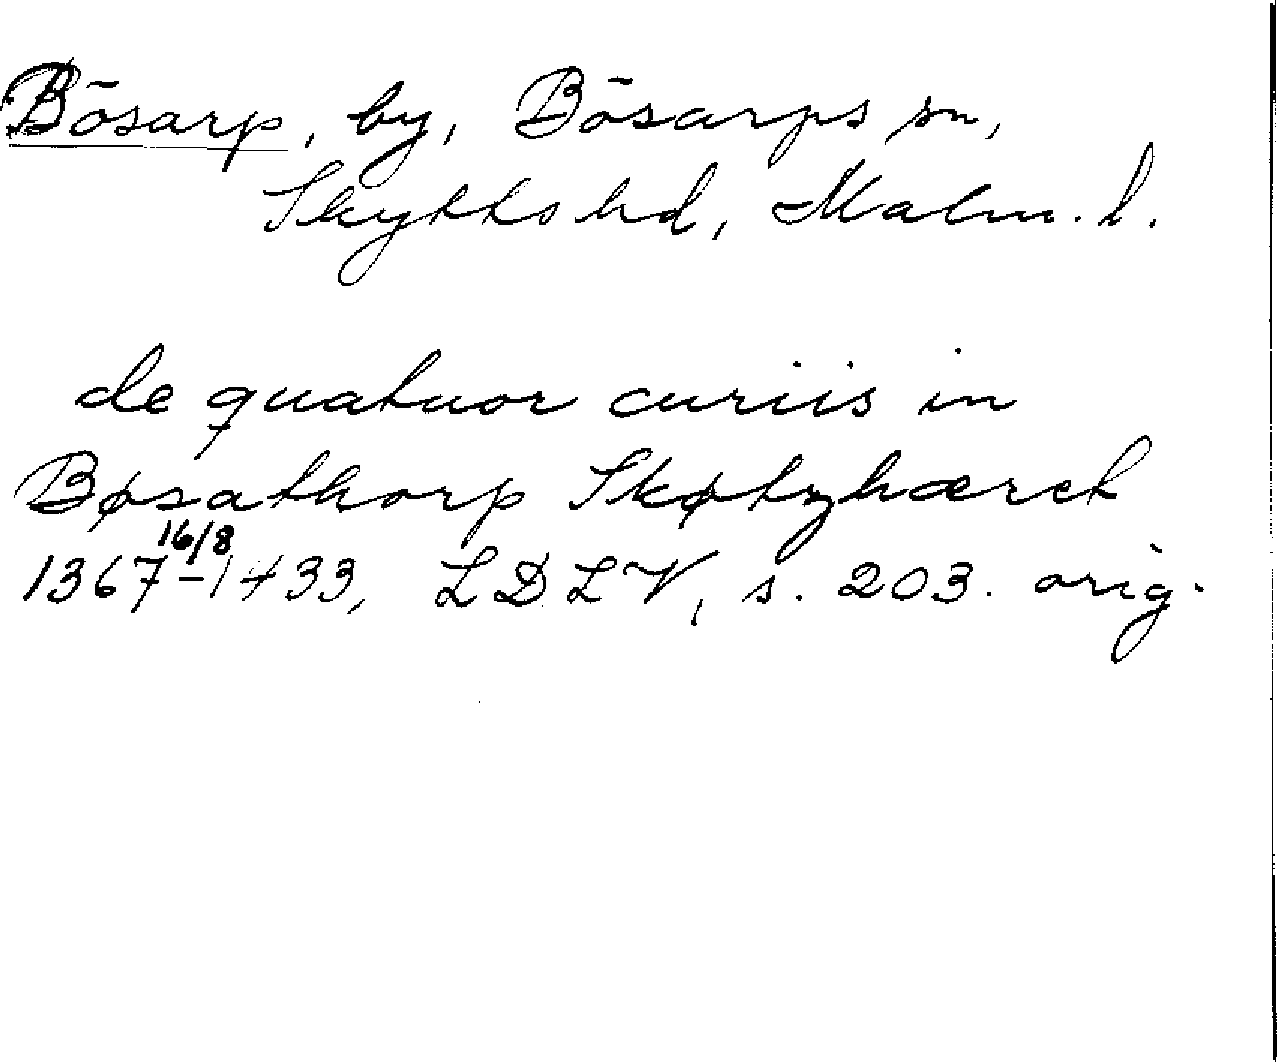 Bösarp, by, Bösarps sn,
Skytts hd, Malm. l.
de quatuor curiis in
Bøsathorp Skøtzhæret
16/8
1367-1433, LDLV, s. 203. orig.